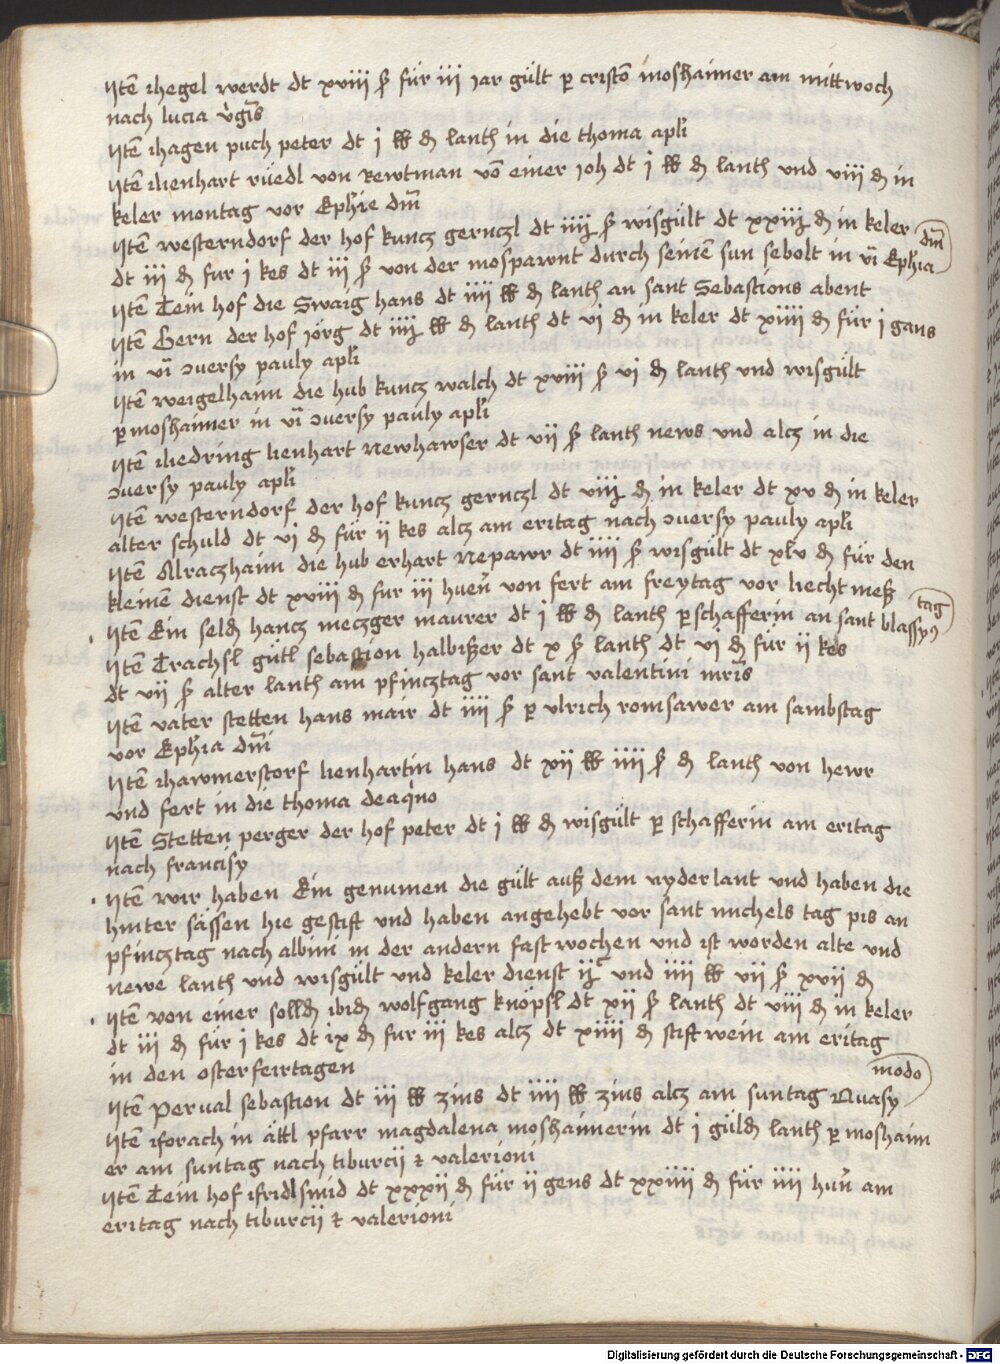 Jtē Hegel werdt dt xviii ß für iii jar gült p cristō moshaimer am mittwoch
nach lucia vgīs
Jtē Hagen puch peter dt j lb d lanth in die thoma apli
Jtē Lienhart rüedl von Rewtman vō einer joh dt j lb d lanth und viii d in
keler montag vor Ephīe dm̄
Jtē westerndorf der hof kuncz gernczl dt iiij ß wisgült dt xxiij d in keler
dt iii d fur j kes dt iii ß von der mosparwnt durch seinē sun sebolt in vī Ephia dm̄
Jtē Tein hof die Swaig hans dt iiii lb d lanth an sant Sebastions abent
Jtē Gern der hof jörg dt iiij lb d lanth dt vi d in keler dt xiiii d für j gans
in vī ɔversy pauly apli
Jtē weigelhaim die hub kuncz walch dt xviii ß vi d lanth und wisgült
p moshaimer in vī ɔversy pauly apli
Jtē Hedring lienhart Newhawser dt vii ß lanth news und alcz in die
ɔversy pauly apli
Jtē westerndorf der hof kuncz gernczl dt viij d in keler dt xv d in keler
alter schuld dt vi d für ii kes alcz am eritag nach ɔversy pauly apli
Jtē Alraczhaim die hub erhart Nepawr dt iiii ß wisgült dt xlv d für den
kleinen dienst dt xviii d fur iii huen̄ von fert am freytag vor liechtmeß
Jtē Ein seld hancz meczger maurer dt j lb d lanth p schafferin an sant blassy tag
Jtē Trachsl gütl sebastion halbißer dt x ß lanth dt vi d fur ii kes
dt vii ß alter lanth am pfincztag vor sant valentini mrīs
Jtē vater stetten hans mair dt iiii ß p ulrich romsawer am sambstag
vor Ephia dm̄i
Jtē Hawmerstorf lienhartin hans dt xii lb iiii ß d lanth von hewr
und fert in die thoma deaqino
Jtē Stetten perger der hof peter dt j lb d wisgült p schafferin am eritag
nach francisy
Jtē wir haben Ein genumen die gült auß dem nyderlant und haben die
hinter sässen hie gestift und haben angehebt vor sant michels tag pis an
pfincztag nach albini in der andern fastwochen und ist worden alte und
newe lanth und wisgült und keler dienst ijc und iiii lb vii ß xvii d
Jtē von einer solld ibid wolfgang knöpsl dt xii ß lanth dt viii d in keler
dt iii d für j kes dt ix d fur iii kes alcz dt xiiii d stiftwein am eritag
in den osterfeirtagen
Jtē Perval sebastion dt iii lb zins dt iiii lb zins alcz am suntag Quasy modo
Jtē Forach in ättl pfarr magdalena moshaimerin dt j güld lanth p moshaim
er am suntag nach tiburcij & valerioni
Jtē Tein hof Fridlsmid dt xxxii d für ii gens dt xxiiii d für iiii hun̄ am
eritag nach tiburcij & valerioni
Digitalisierung gefördert durch die Deutsche Forschungsgemeinschaft - DFG